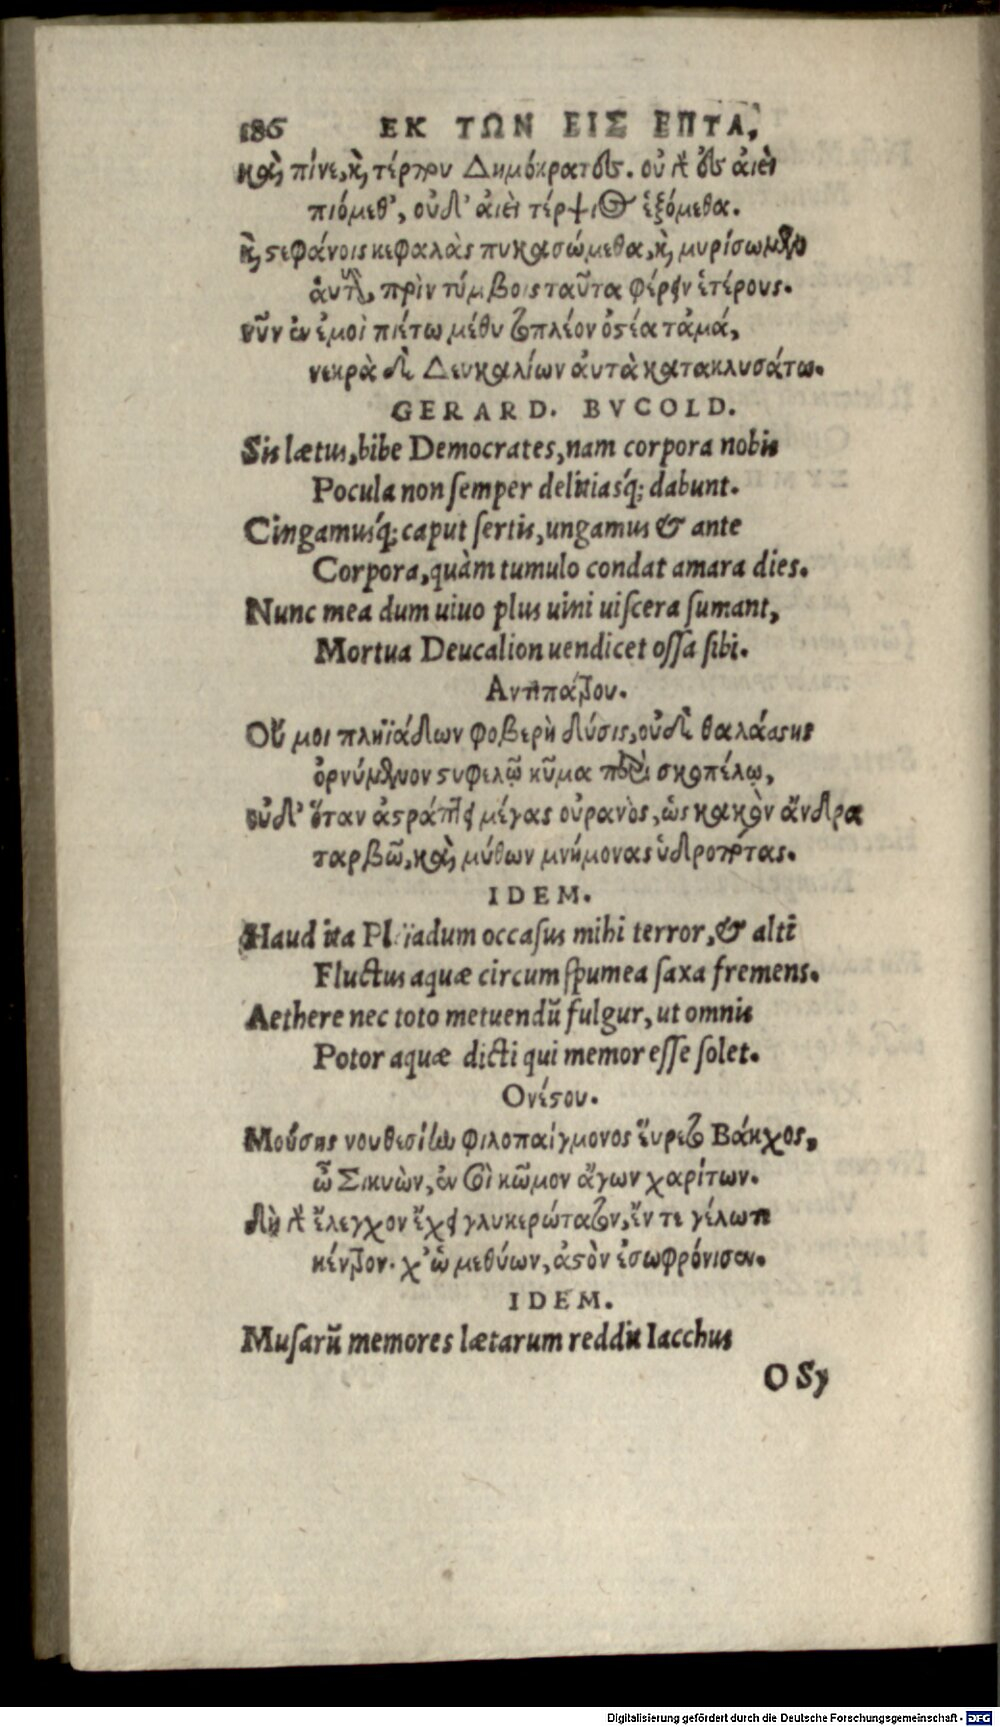 186 ΕΚ ΤΩΝ ΕΙΣ ΕΠΤΑ,
καὶ πίνε, καὶ τέρπου Δημόκρατες. οὐ γὰρ ἐς ἀιεὶ
πιόμεθ', οὐδ' ἀιεὶ τέρψιος ἑξόμεθα.
καὶ στεφάνοις κεφαλὰς πυκασώμεθα, καὶ μυρίσωμεν
ἀυτοὺς, πρὶν τύμβοις ταῦτα φέρειν ἑτέρους.
νῦν ἐν ἐμοὶ πιέτω μέθυ τοπλέον ὀστέα τἀμά,
νεκρὰ δὲ Δευκαλίων ἀυτὰ κατακλυσάτω.
GERARD. BVCOLD.
Sis lætus, bibe Democrates, nam corpora nobis
Pocula non semper delitiasq́; dabunt.
Cingamusq́; caput sertis, ungamus & ante
Corpora, quàm tumulo condat amara dies.
Nunc mea dum uiuo plus uini uiscera sumant,
Mortua Deucalion uendicet ossa sibi.
Αντιπάτρου.
Οὔ μοι πληϊάδων φοβερὴ δύσις, οὐδὲ θαλάσσης
ὀρνύμενον στυφελῷ κῦμα περὶ σκοπέλῳ,
οὐδ' ὅταν ἀστράπτῃ μέγας οὐρανὸς, ὡς κακὸν ἄνδρα
ταρβῶ, καὶ μύθων μνήμονας ὑδροπότας.
IDEM.
Haud ita Pleïadum occasus mihi terror, & alti
Fluctus aquæ circum spumea saxa fremens.
Aethere nec toto metuendũ fulgur, ut omnis
Potor aquæ dicti qui memor esse solet.
Ονέστου.
Μούσης νουθεσίην φιλοπαίγμονος ἕυρετο Βάκχος,
ὦ Σικυὼν, ἐν σοὶ κῶμον ἄγων χαρίτων.
δὴ γὰρ ἔλεγχον ἔχει γλυκερώτατον, ἔν τε γέλωτι
κέντρον. χ' ὦ μεθύων, ἀστὸν ἐσωφρόνισεν.
IDEM.
Musarũ memores lætarum reddit Iacchus
O Sy
Digitalisierung gefördert durch die Deutsche Forschungsgemeinschaft - DFG